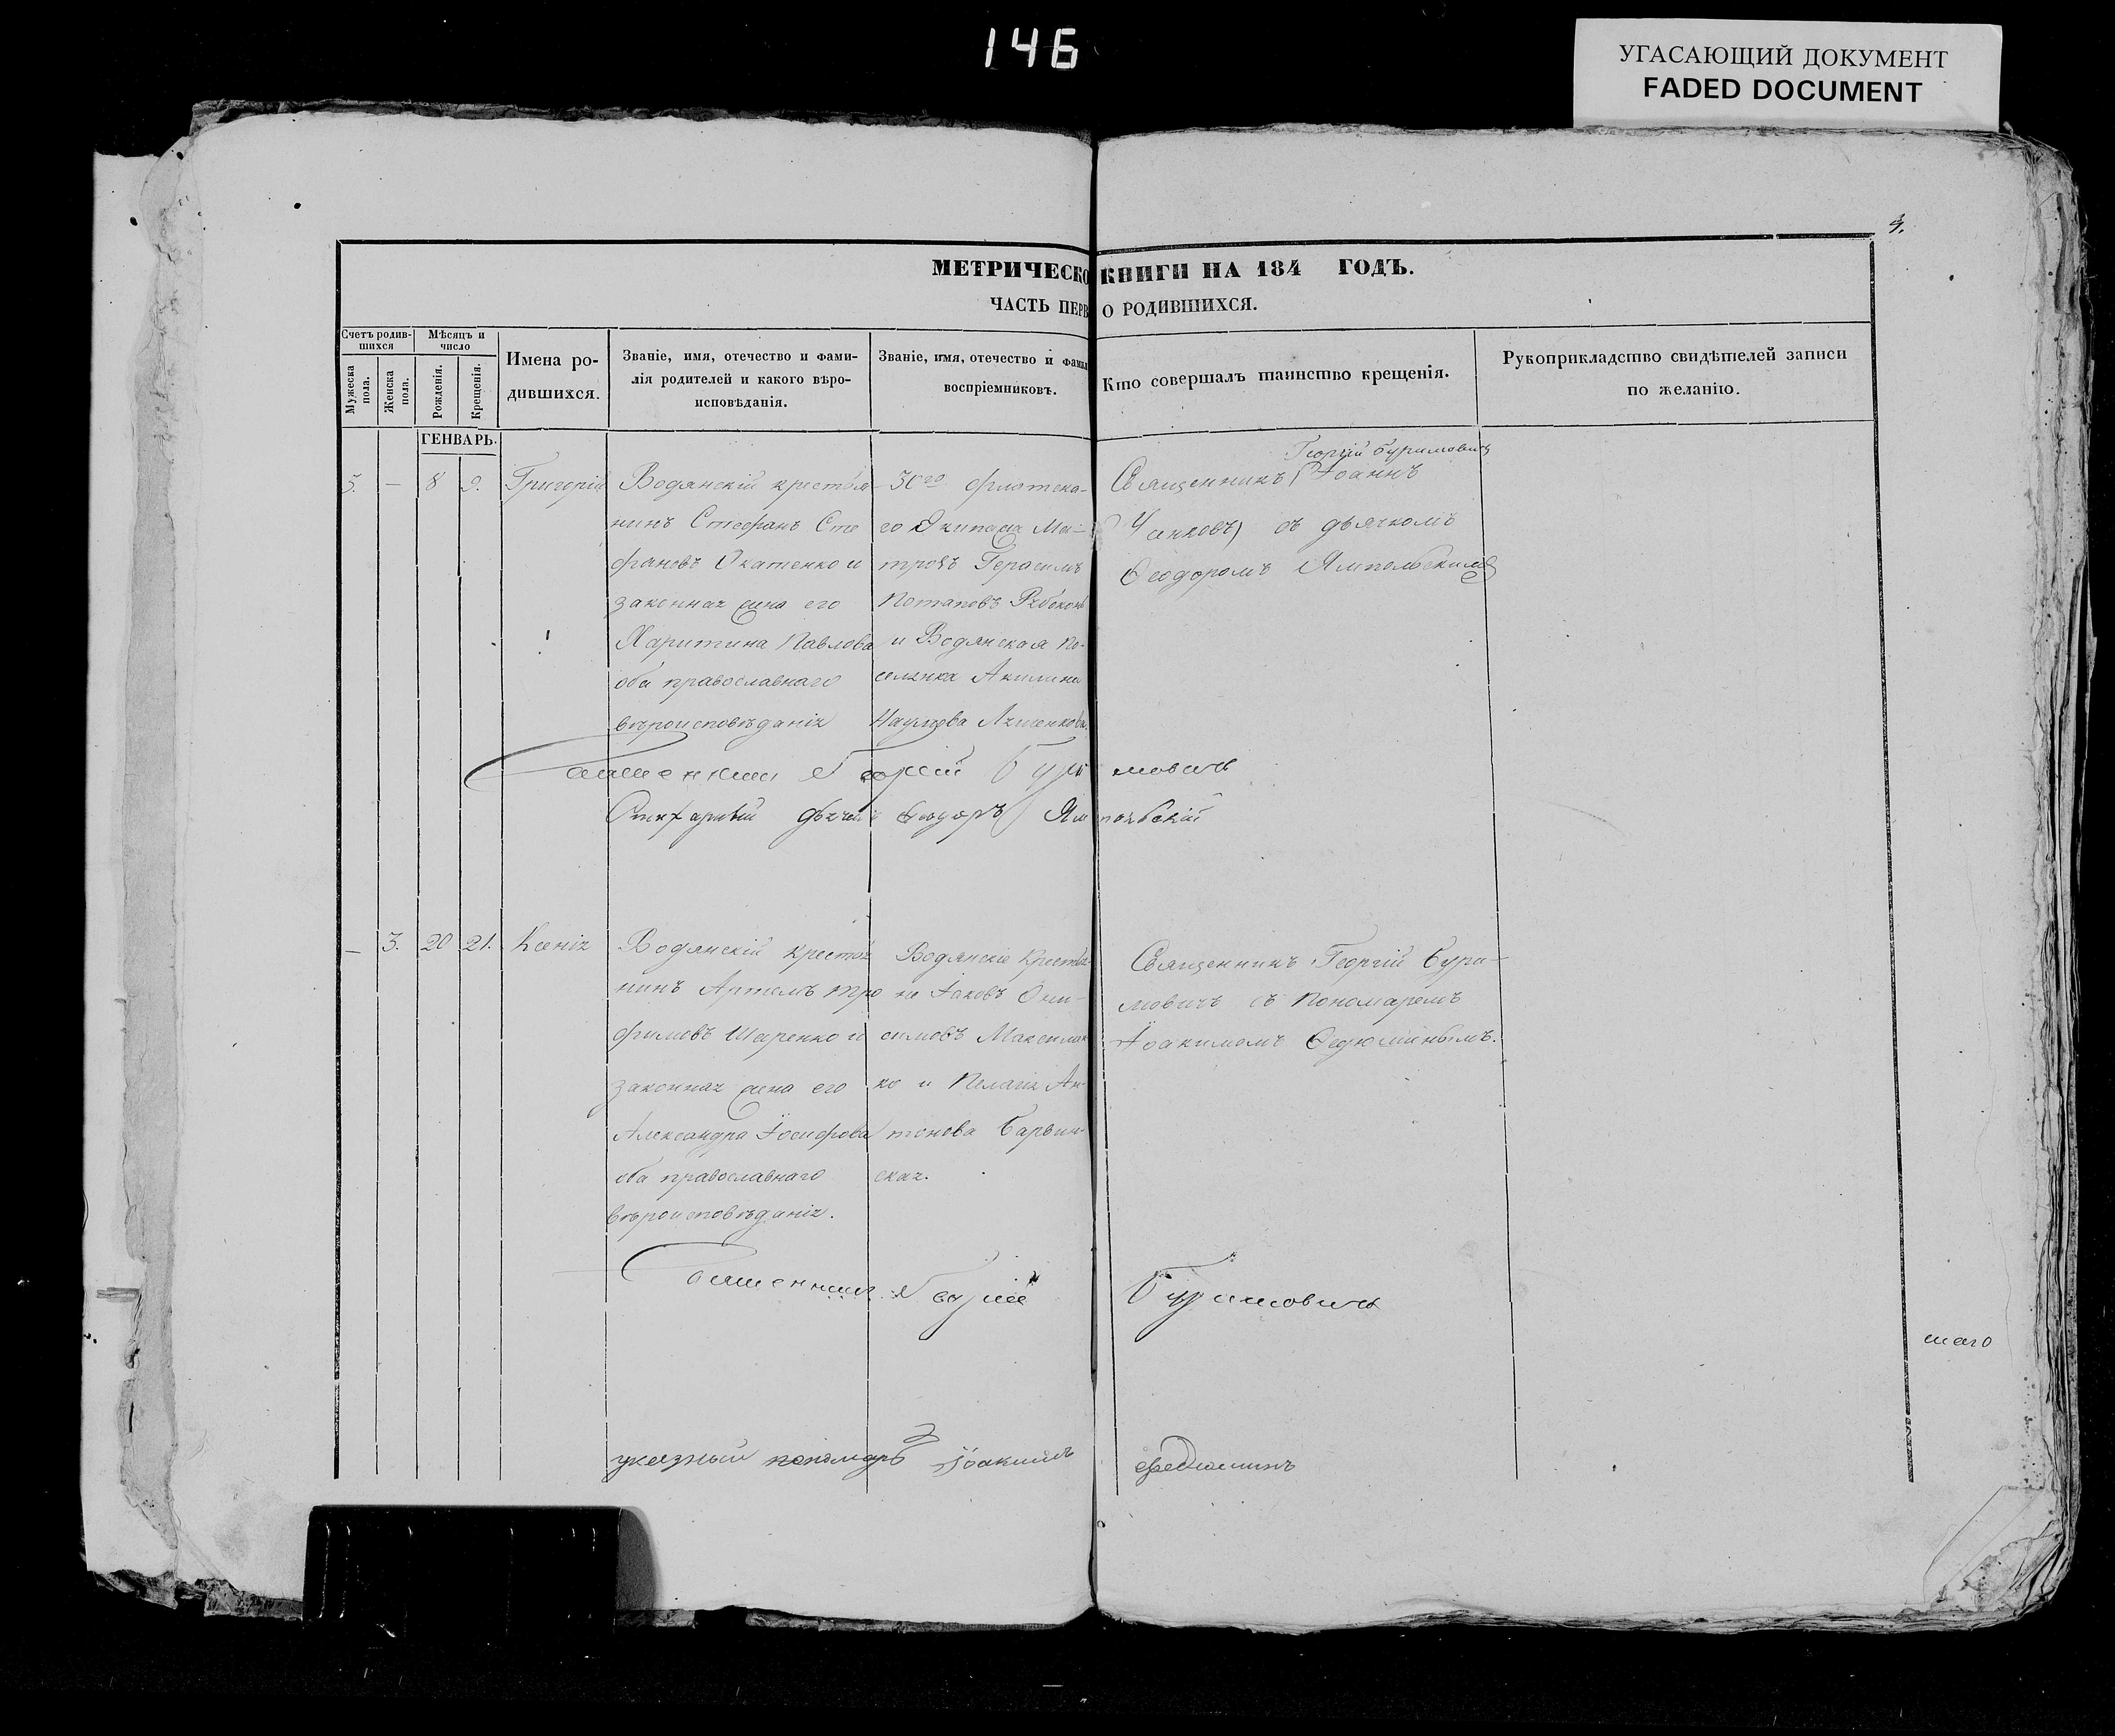 146
УГАСАЮЩИЙ ДОКУМЕНТ
FADED DOCUMENT
4.
МЕТРИЧЕСКО КНИГИ НА 184 ГОДЪ.
ЧАСТЬ ПЕРВ О РОДИВШИХСЯ.
Счетъ родив-
шихся
Мужеска пола.
Женска пола.
Мѣсяцъ и
число
Рожденія.
Крещенія.
Имена ро-
дившихся.
Званіе, имя, отечество и фами-
лія родителей и какого вѣро-
исповѣданія.
Званіе, имя, отечество и фамил
воспріемниковъ.
Кто совершалъ таинство крещенія.
Рукоприкладство свидѣтелей записи
по желанію.
ГЕНВАРЬ.
5. — 8 9. Григорій
Водянскій крестья-
нинъ Стефанъ Сте
фановъ Окатенко и
законная жена его
Харитина Павлова
оба православнаго
вѣроисповѣданія
30го флотска-
го Экипажа Ма-
тросъ Герасимъ
Потаповъ Рябоконь
и Водянская по-
селянка Акилина
Наумова
Георгій Буримовичъ
Священникъ (Іоаннъ
Чанковъ) съ дьячкомъ
Ѳеодоромъ Ямпольскимъ
Священникъ Георгій Буримовичъ
Стихарный дьячекъ Ѳеодоръ Ямпольскій
— 3. 20 21. Ксенія
Водянскій крестья
нинъ Артемъ Тро
фимовъ Шаренко и
законная жена его
Александра Іосифова
оба православнаго
вѣроисповѣданія.
Водянскіе крестья-
не Іаковъ Они-
симовъ Максимен
ко и Пелагія Ан-
тонова Барвин-
ская.
Священникъ Георгій Бури-
мовичъ съ пономаремъ
Іоакимомъ Ѳедюшинымъ.
Священникъ Георгій Буримовичъ
указный пономарь Іоакимъ Федюшинъ
шаго